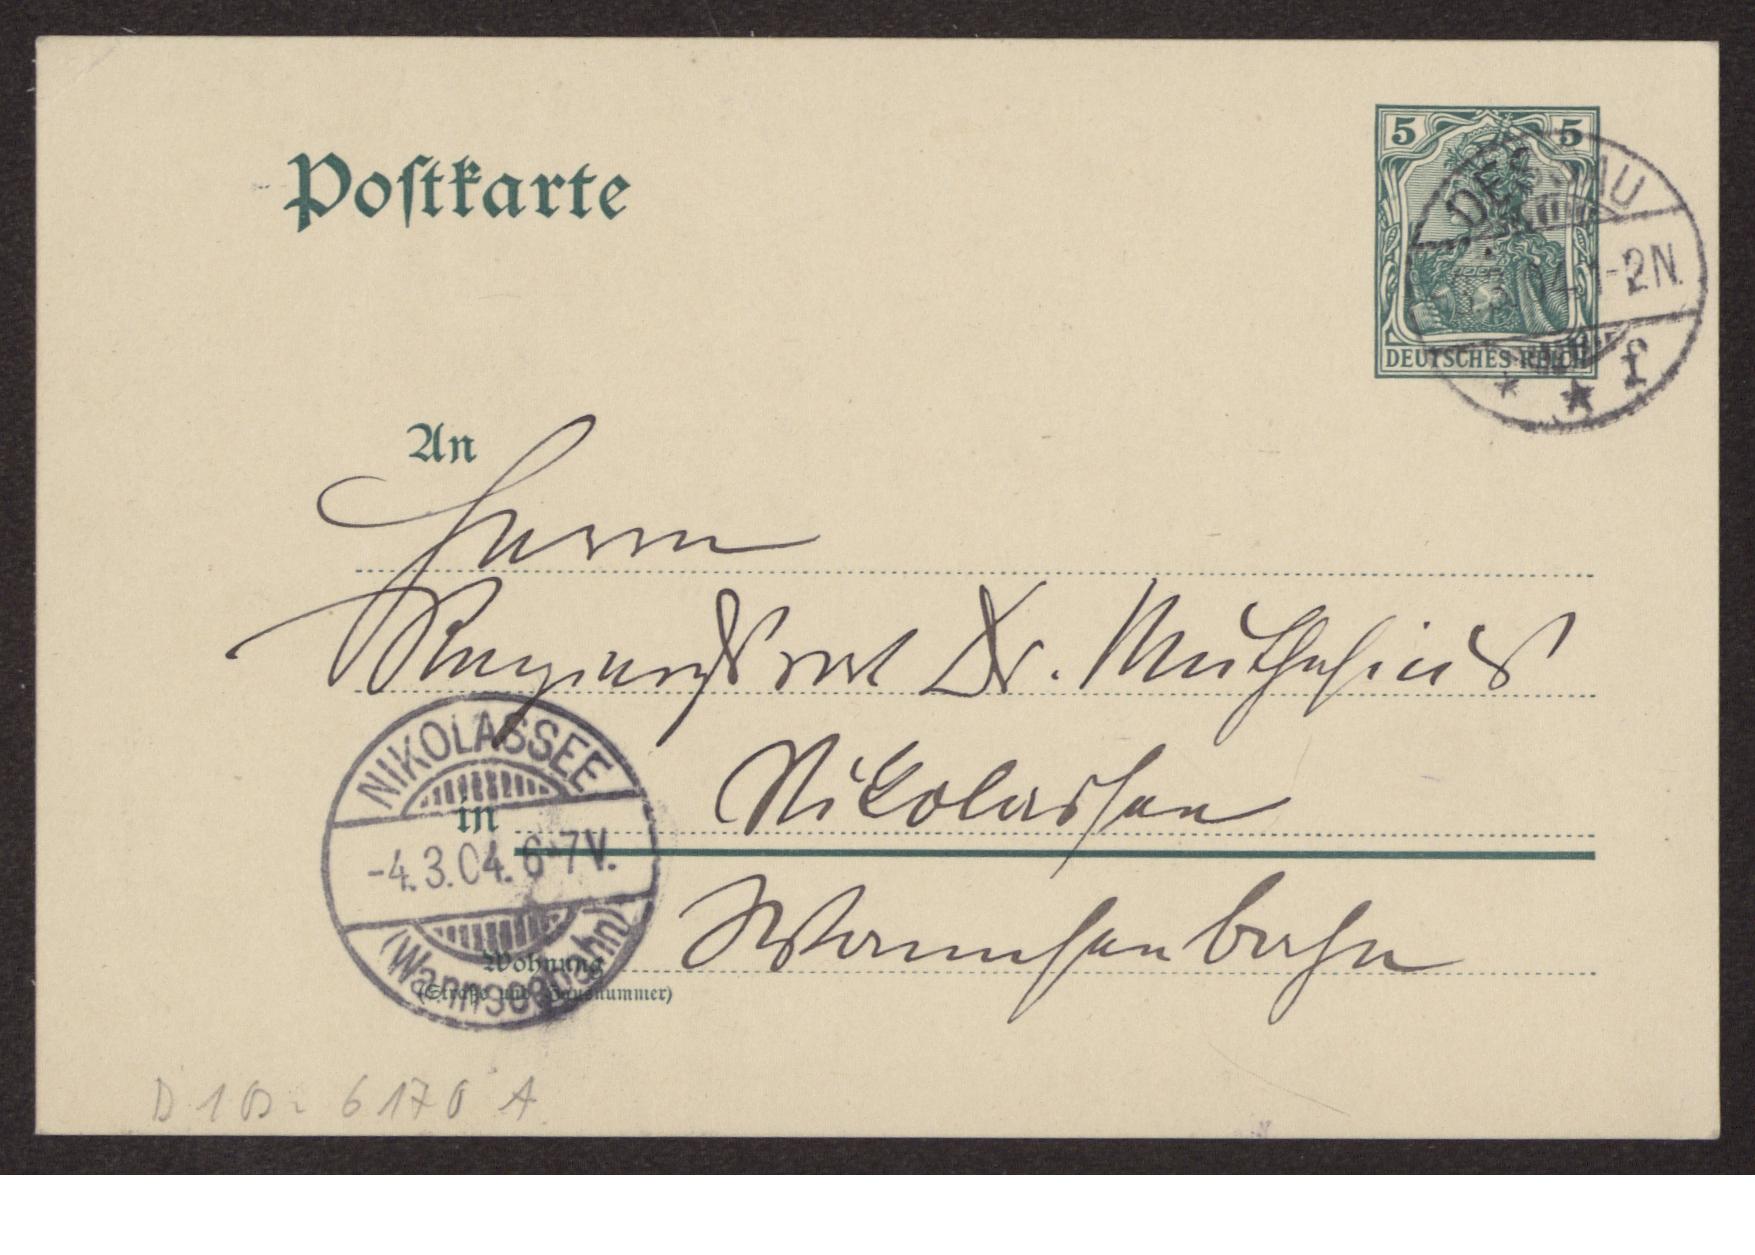 Postkarte
5 5
DEUTSCHES REICH
DESSAU
3.04.1-2N.
* * f
An
Herrn
Regierungsrat Dr. Muthesius
Nikolassee
in
NIKOLASSEE
-4.3.04.6-7V.
(Wannseebahn)
Wannseebahn
Wohnung
(Straße und Hausnummer)
6170 A